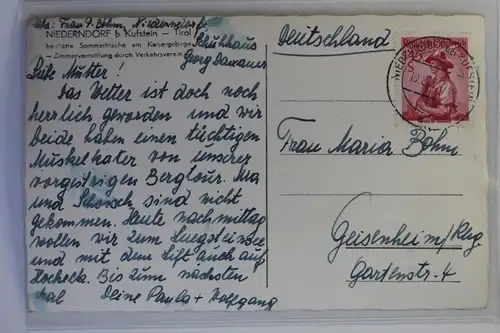 Abs: Frau P. Böhm, Niederndorf
NIEDERNDORF b. Kufstein — Tirol
herrliche Sommerfrische am Kaisergebirge
— Zimmervermittlung durch Verkehrsverein —
Schuhhaus
Georg
Liebe Mutter!
Das Wetter ist doch noch
herrlich geworden und wir
beide haben einen tüchtigen
Muskelkater von unserer
vorgestrigen Bergtour. Ma
und Schorsch sind nicht
gekommen. Heute nachmittag
wollen wir zum Luegsteinsee
und mit dem Lift auch auf
Hocheck. Bis zum nächsten
Mal Deine Paula + Wolfgang
Deutschland
Frau Maria Böhm
Geisenheim/Rhg.
Gartenstr. 4